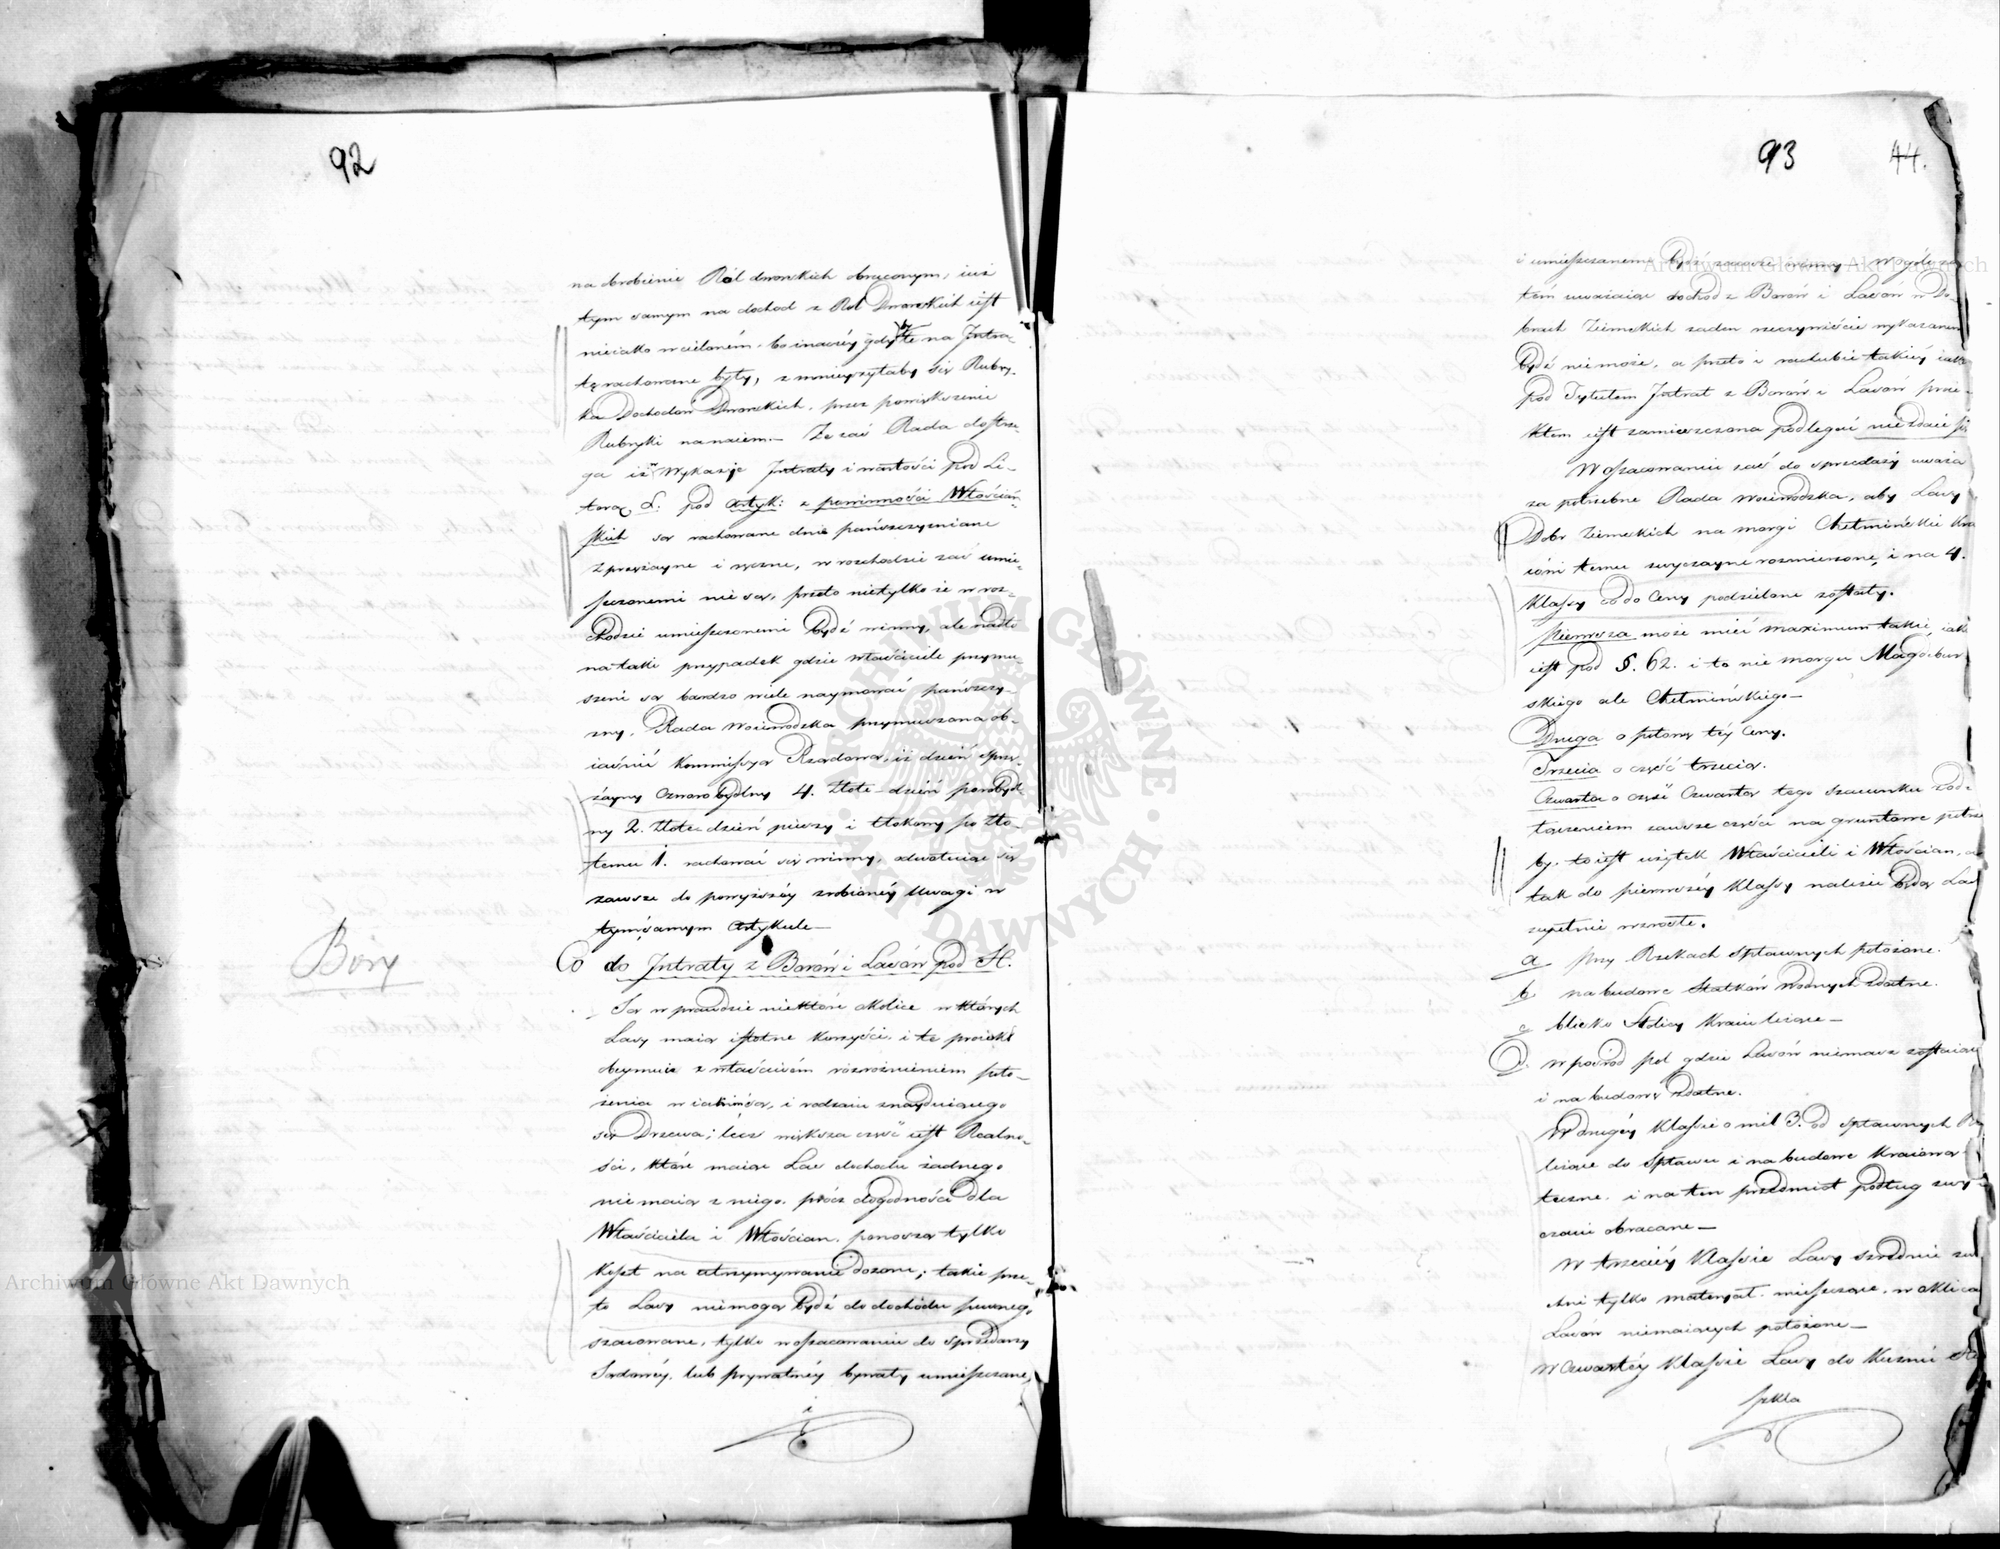 92
na obrobienie Ról dworskich obróconym, iuż
tym samym na dochod z Ról Dworskich iest
nieiako wcielonem, bo inaczéy gdyby te na Intra-
tę rachowane były, zmnieyszyłaby się Rubry-
ka Dochodów Dworskich, przez powiększenie
Rubryki na naiem.— Że zaś Rada dostrze-
ga iż w Wykazie Intraty i wartości pod Li-
terą L: pod Artyk: z powinności Włościań-
skich są rachowane dnie pańszczyzniane
sprzężayne i ręczne, w rozchodzie zaś umie-
szczonemi nie są, przeto nietylko że w roz-
chodzie umieszczonemi bydź winny, ale nadto
na taki przypadek gdzie właściciele przymu-
szeni są bardzo wiele naymować pańszczy-
zny, Rada Woiewodzka przymuszona ob-
iaśnić Kommissyą Rządową, iż dzień sprzę-
żayny czworobydlny 4. złote dzień parobydl-
ny 2. złote dzień pieszy i tłokowy po zło-
temu 1. rachować się winny, odwołuiąc się
zawsze do powyższéy zrobionéy uwagi w
tymsamym Artykule—
Bory
Co do Intraty z Borów i Lasów pod H.
Są w prawdzie niektóre okolice w których
Lasy maią istotne korzyści, i te proiekt
obeymuie z właściwém rozróżnieniem poło-
żenia w iakim są, i rodzaiu znayduiącego
się Drzewa; lecz większa część iest Realno-
ści, które maiąc Las dochodu żadnego
nie maią z niego, prócz dogodności dla
Właściciela i Włościan, ponoszą tylko
koszt na utrzymywanie dozoru; takie prze-
to Lasy niemogą bydź do dochodu pewnego
szacowane, tylko w oszacowaniu do sprzedaży
Sądowéy, lub prywatnéy bywały umieszczane,
i
93
44.
i umieszczanemi bydź zawsze winny. W ogóle za-
tém uważaiąc dochod z Borów i Lasów w Do-
brach Ziemskich żaden rzeczywiście wykazanem
bydź niemoże, a przeto i rachubie takiéy iaka
pod Tytułem Intrat z Borów i Lasów proie-
ktem iest zamieszczona podlegać niezdaie się
W oszacowaniu zaś do sprzedaży uważa
za potrzebne Rada Woiewodzka, aby Lasy
Dobr Ziemskich na morgi Chełmińskie Kra-
iowi temu zwyczayne rozmierzone, i na 4.
Klassy co do Ceny podzielone zostały.
Pierwsza może mieć maximum takie, iakie
iest pod §. 62. i to nie morgu Magdebur-
skiego ale Chełmińskiego—
Druga o połowę téy Ceny.
Trzecia o część trzecią.
Czwarta o część Czwartą tego szacunku z od-
łączeniem zawsze części na gruntowe potrze-
by, to iest użytek Właścicieli i Włościan, a
tak do pierwszéy Klassy należeć będą Lasy
zupełnie wzrosłe.
a przy Rzekach spławnych położone.
b na budowę Statków wodnych zdatne.
c blisko Stolicy Kraiu leżące—
d. w pośrod pol gdzie Lasów niemasz zostaiące
i na budowę zdatne.
W drugiéy Klassie o mil 3. od spławnych Rzek
leżące do spławu i na budowę Kraiową
łuczne i na ten przedmiot podług zwy-
czaiu obracane—
W trzeciéy Klassie Lasy szrednie
tylko materyał mieszczące, w okolicach
Lasów niemaiących położone—
W Czwartéy Klassie Lasy do Kuźnic
szkła